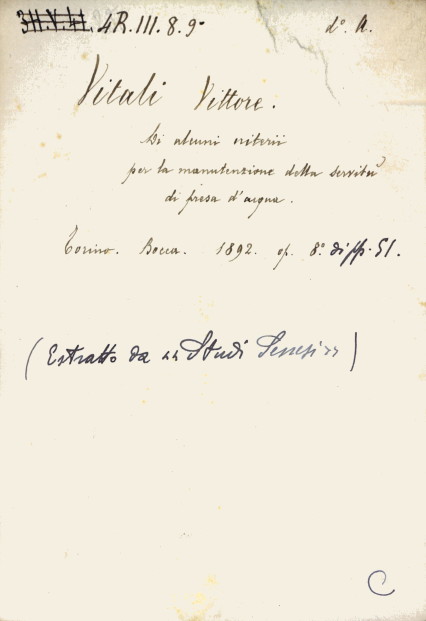 3.H.V.41. 4R.III.8.9. d°. A.
Vitali Vittore.
Di alcuni criterii
per la manutenzione della servitù
di presa d'acqua.
Torino. Bocca. 1892. op. 8.° di pp. 51.
(Estratto da "Studi Senesi")
C